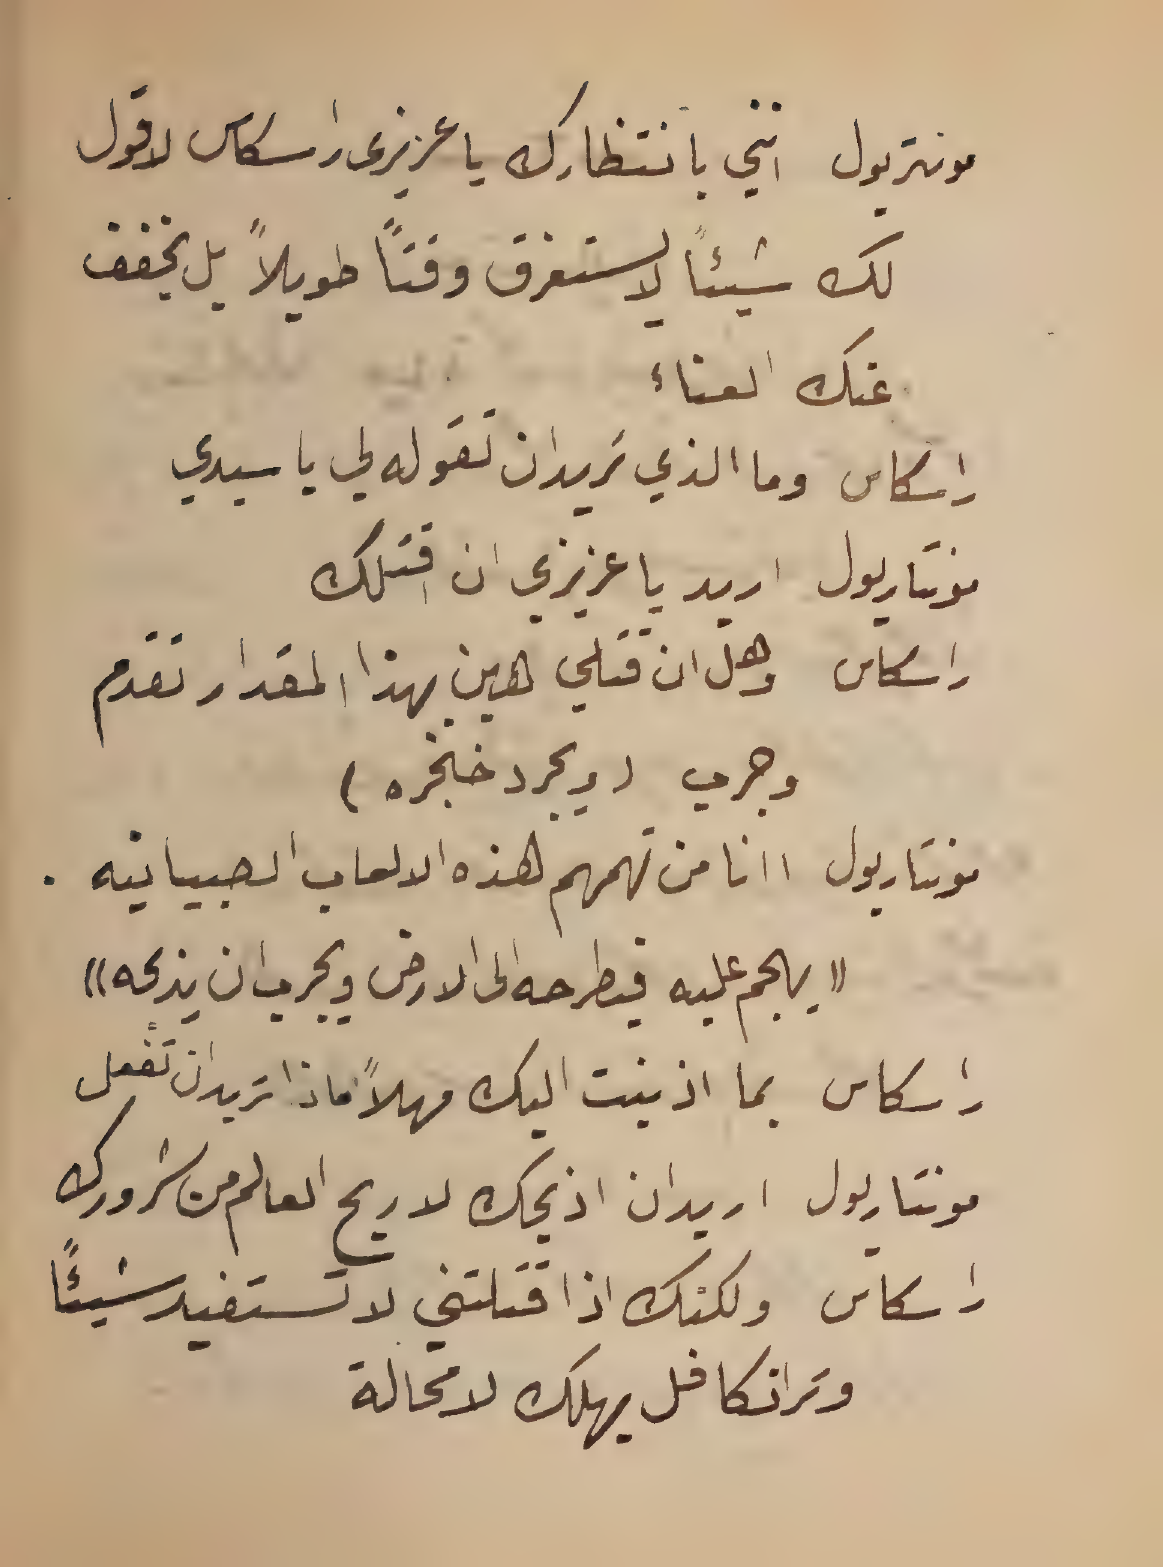 مونتريول انني بانتظارك يا عزيزي راسكاس لاقول
لك شيئاً لا يستغرق وقتاً طويلاً بل يخفف
عنك العناء
راسكاس وما الذي تريد ان تقوله لي يا سيدي
مونتاريول اريد يا عزيزي ان اقتلك
راسكاس وهل ان قتلي هين بهذا المقدار تقدم
وجرب (ويجرد خنجره)
مونتاريول اانا من تهمهم هذه الالعاب الصبيانيه .
«يهجم عليه فيطرحه الى الارض ويجرب ان يذبحه»
راسكاس بما اذنبت اليك مهلاً ماذا تريد ان تفعل
مونتاريول اريد ان اذبحك لاريح العالم من شرورك
راسكاس ولكنك اذا قتلتني لا تستفيد شيئاً
وترانكافل يهلك لا محالة